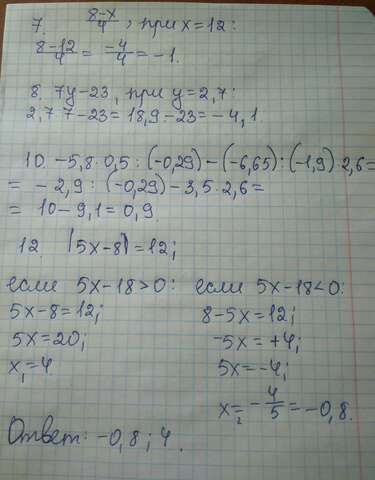 7. 8-x/4, при x=12:
8-12/4 = -4/4 = -1.
8 7y-23, при y=2,7:
2,7 7-23=18,9-23=-4,1
10 -5,8·0,5:(-0,29)-(-6,65):(-1,9) 2,6=
= -2,9:(-0,29)-3,5·2,6=
= 10-9,1=0,9.
12. |5x-8|=12;
если 5x-18>0:
5x-8=12;
5x=20;
x₁=4.
если 5x-18<0:
8-5x=12;
-5x=+4;
5x=-4;
x₂=-4/5=-0,8.
Ответ: -0,8; 4.